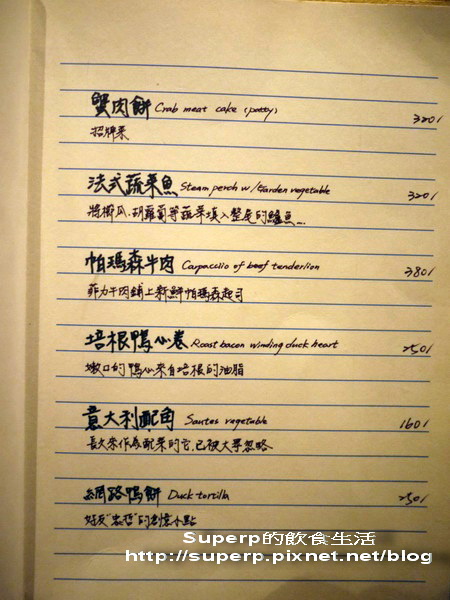 蟹肉餅 Crab meat cake (patty) 320/
招牌菜
法式蔬菜魚 Steam perch w/Garden vegetable 320/
將櫛瓜.胡蘿蔔等蔬菜填入整尾的鱸魚...
帕瑪森牛肉 Carpaccio of beef tenderlion 380/
菲力牛肉鋪上新鮮帕瑪森起司
培根鴨心卷 Roast bacon winding duck heart 250/
嫩口的鴨心來自培根的油脂
意大利配角 Sautes vegetable 160/
長久來作為配菜的它.已被大眾忽略
網路鴨餅 Duck tortilla 250/
好友"宏哲"的創意小點
Superp的飲食生活
http://superp.pixnet.net/blog